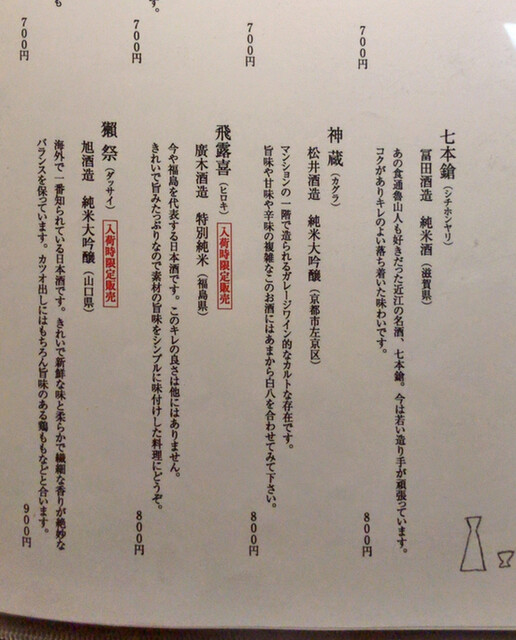 700円
700円
す。
700円
も
700円
七本鎗（シチホンヤリ）
冨田酒造　純米酒（滋賀県）
あの食通魯山人も好きだった近江の名酒、七本鎗。今は若い造り手が頑張っています。
コクがありキレのよい落ち着いた味わいです。
800円
神蔵（カグラ）
松井酒造　純米大吟醸（京都市左京区）
マンションの一階で造られるガレージワイン的なカルトな存在です。
旨味や甘味や辛味の複雑なこのお酒にはあまから白八を合わせてみて下さい。
800円
飛露喜（ヒロキ）入荷時限定販売
廣木酒造　特別純米（福島県）
今や福島を代表する日本酒です。このキレの良さは他にはありません。
きれいで旨みたっぷりなので素材の旨味をシンプルに味付けした料理にどうぞ。
800円
獺祭（ダッサイ）入荷時限定販売
旭酒造　純米大吟醸（山口県）
海外で一番知られている日本酒です。きれいで新鮮な味と柔らかで繊細な香りが絶妙な
バランスを保っています。カツオ出しにはもちろん旨味のある鶏ももなどと合います。
900円